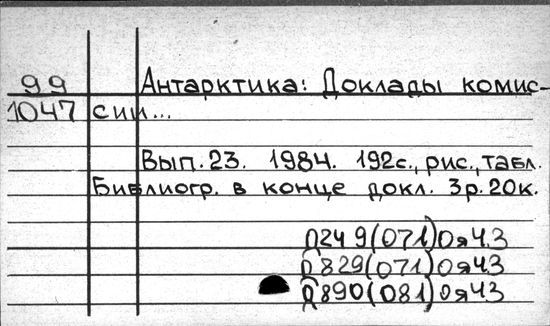 99 Антарктика: Доклады комис-
1047 сии...
Вып.23. 1984. 192с., рис., табл.
Библиогр. в конце докл. 3р.20к.
Д249(071)0я43
Д829(071)0я43
Д890(081)0я43